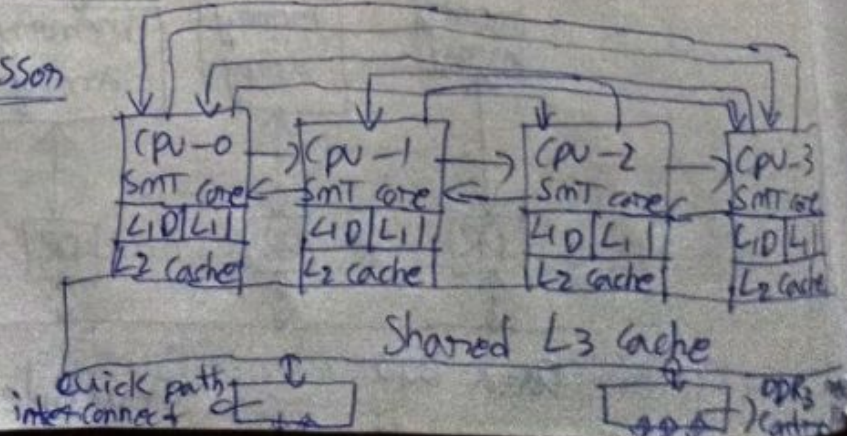 SSon
CPU-0
SMT core
L1D L1I
L2 cache
CPU-1
SMT core
L1D L1I
L2 cache
CPU-2
SMT core
L1D L1I
L2 cache
CPU-3
SMT core
L1D L1
L2 cache
Shared L3 cache
Quick path
interconnect
DDR3